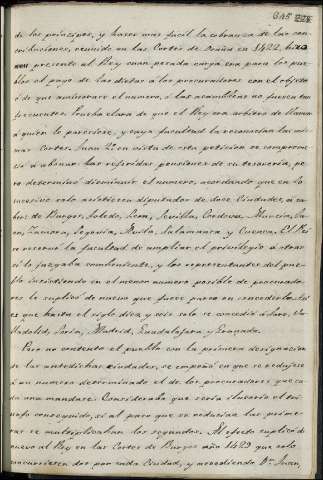 645 228
de los principes, y hacer mas facil la cobranza de las con-
tribuciones, reunido en las Cortes de Ocaña en 1422, hizo
presente al Rey cuan pesada carga era para los pue-
blos el pago de las dietas á los procuradores con el objeto
ó de que aminorase el numero, ó las asambleas no fuesen tan
frecuentes. Prueba clara de que el Rey era arbitro de llamar
á quien le pareciese, y cuya facultad la reconocian las mis-
mas Cortes. Juan 2º en vista de esta peticion se comprome-
tió á abonar las referidas pensiones de su tesoreria, pe-
ro determinó disminuir el numero, acordando que en lo
sucesivo solo asistieran diputados de doce Ciudades, á sa-
ber: de Burgos, Toledo, Leon, Sevilla, Cordova, Murcia, Ja-
en, Zamora, Segovia, Avila, Salamanca y Cuenca. El Rei
se reservó la facultad de ampliar el privilegio á otras
si lo juzgaba combeniente, y los representantes del pue-
blo insistiendo en el menor numero posible de procurado-
res le suplicó de nuevo que fuese parco en concederlo. Asi
es que hasta el siglo diez y seis solo se concedió á Toro, Va-
lladolid, Soria, Madrid, Guadalajara y Granada.
Pero no contento el pueblo con la primera designacion
de las antedichas ciudades, se empeñó en que se redujese
á un numero determinado el de los procuradores que ca-
da una mandase. Consideraba que seria ilusorio el tri-
unfo conseguido, si al paso que se reducian las prime-
ras se multiplicaban los segundos. Al efecto suplicó de
nuevo al Rey en las Cortes de Burgos año 1429 que solo
concurriesen dos por cada Ciudad, y accediendo Dn Juan,